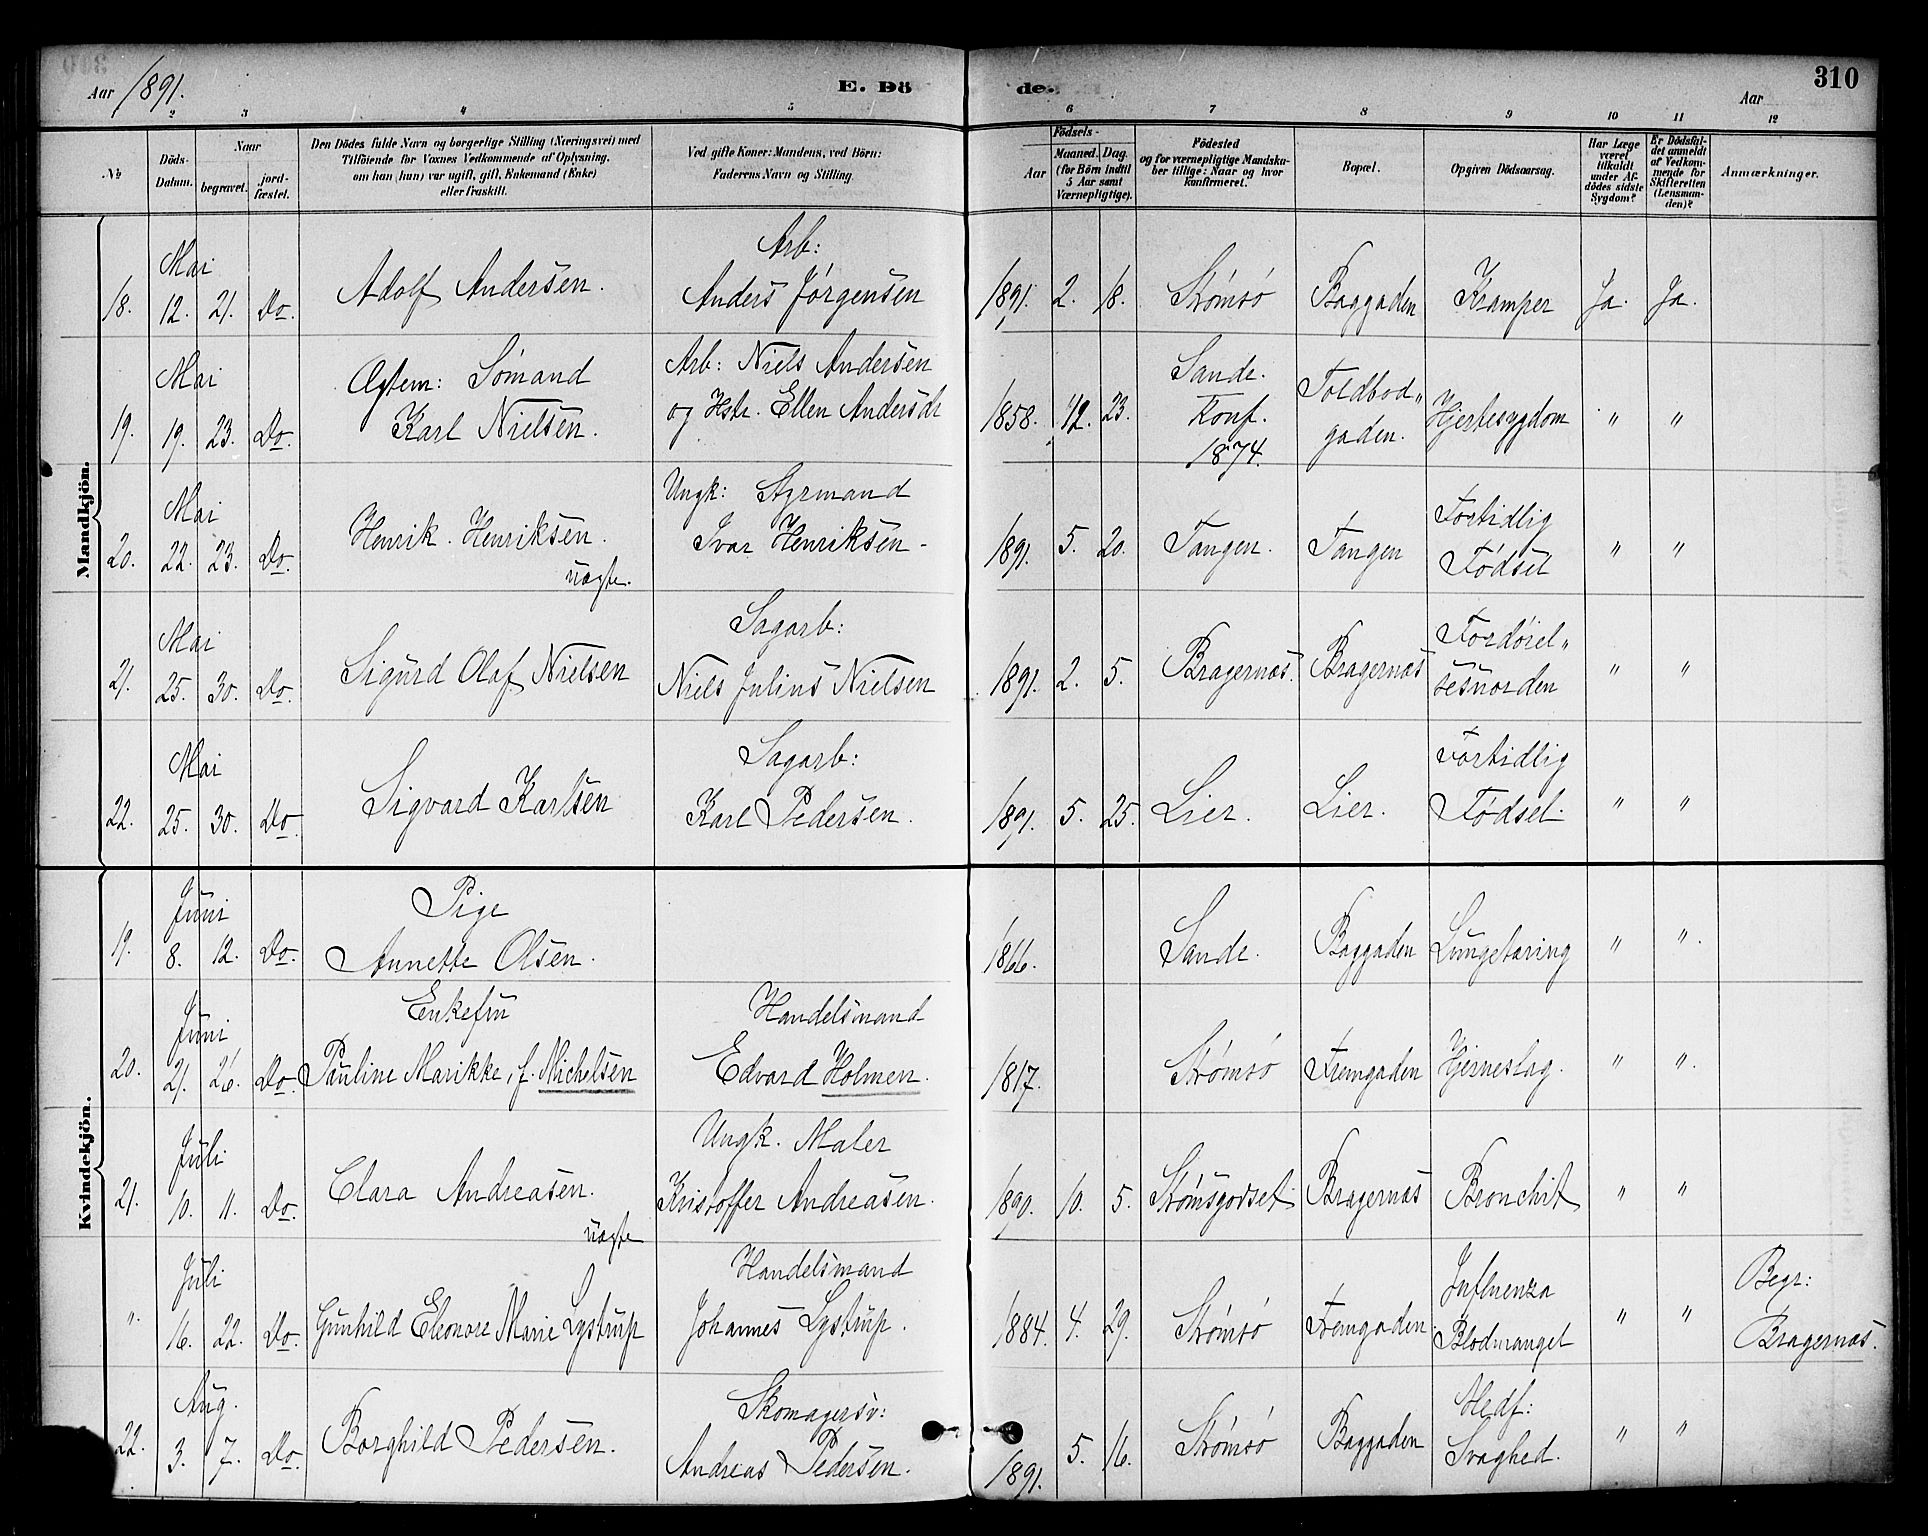 Aar 1891.
E. Dö
de.
310
Aar
2 3 4 5 6 7 8 9 10 11 12
No
Döds-Datum.
Naar
begravet.
jord-fæstet.
Den Dödes fulde Navn og borgerlige Stilling (Næringsvei) med
Tilföiende for Voxnes Vedkommende af Oplysning,
om han (hun) var ugift, gift, Enkemand (Enke)
eller fraskilt.
Ved gifte Koner: Mandens, ved Börn:
Faderens Navn og Stilling.
Födsels-
Aar
Maaned. Dag.
(for Börn indtil
5 Aar samt
Værnepligtige).
Födested
og for værnepligtige Mandska-
ber tillige: Naar og hvor
konfirmeret.
Bopæl.
Opgiven Dödsaarsag.
Har Læge
været
tilkaldt
under Af-
dödes sidste
Sygdom?
Er Dödsfal-
det anmeldt
af Vedkom-
mende for
Skifteretten
(Lensman-
den)?
Anmærkninger.
Mandkjön.
Mai
18. 12. 21. Do. Adolf Andersen.
Arb:
Anders Jörgensen
1891. 2. 18. Strömsö Baggaden Kramper Ja. Ja.
Mai
19. 19. 23. Do.
Ægtem: Sömand
Karl Nielsen.
Arb: Niels Andersen
og Hstr. Ellen Andersdr
1858. 12. 23.
Sande.
Konf.
1874.
Toldbod"
gaden.
Hjertesygdom " "
Mai
20. 22. 23. Do. Henrik Henriksen.
uægte.
Ungk: Styrmand
Ivar Henriksen
1891. 5. 20. Tangen. Tangen
Fortidlig
Födsel
" "
Mai
21. 25. 30. Do. Sigurd Olaf Nielsen
Sagarb:
Niels Julius Nielsen
1891. 2. 5. Bragernæs. Bragernæs
Fordöiel"
sesuorden
" "
Mai
22. 25. 30. Do. Sigvard Karlsen
Sagarb:
Karl Pedersen.
1891. 5. 25. Lier. Lier.
Fortidlig
Födsel.
" "
Kvindekjön.
Juni
19. 8. 12. Do.
Pige
Annette Olsen.
1866. Sande. Baggaden Lungetæring " ".
Juni
20. 21. 26. Do.
Enkefru
Pauline Marikke, f. Michelsen
Handelsmand
Edvard Holmen.
1817. Strömsö Fremgaden Hjerneslag. " ".
Juli
21. 10. 11. Do. Clara Andreasen.
uægte
Ungk. Maler
Kristoffer Andreasen.
1890. 10. 5. Strömsgodset Bragernæs Bronchit " "
Juli
". 16. 22. Do. Gunhild Eleonore Marie Lystrup
Handelsmand
Johannes Lystrup.
1884. 4. 29. Strömsö Fremgaden.
Influenza
Blodmangel
" "
Begr:
Bragernæs.
Aug.
22. 3. 7. Do. Borghild Pedersen.
Skomagersv:
Andreas Pedersen.
1891. 5. 16. Strömsö Baggaden
Medf:
Svaghed.
" "